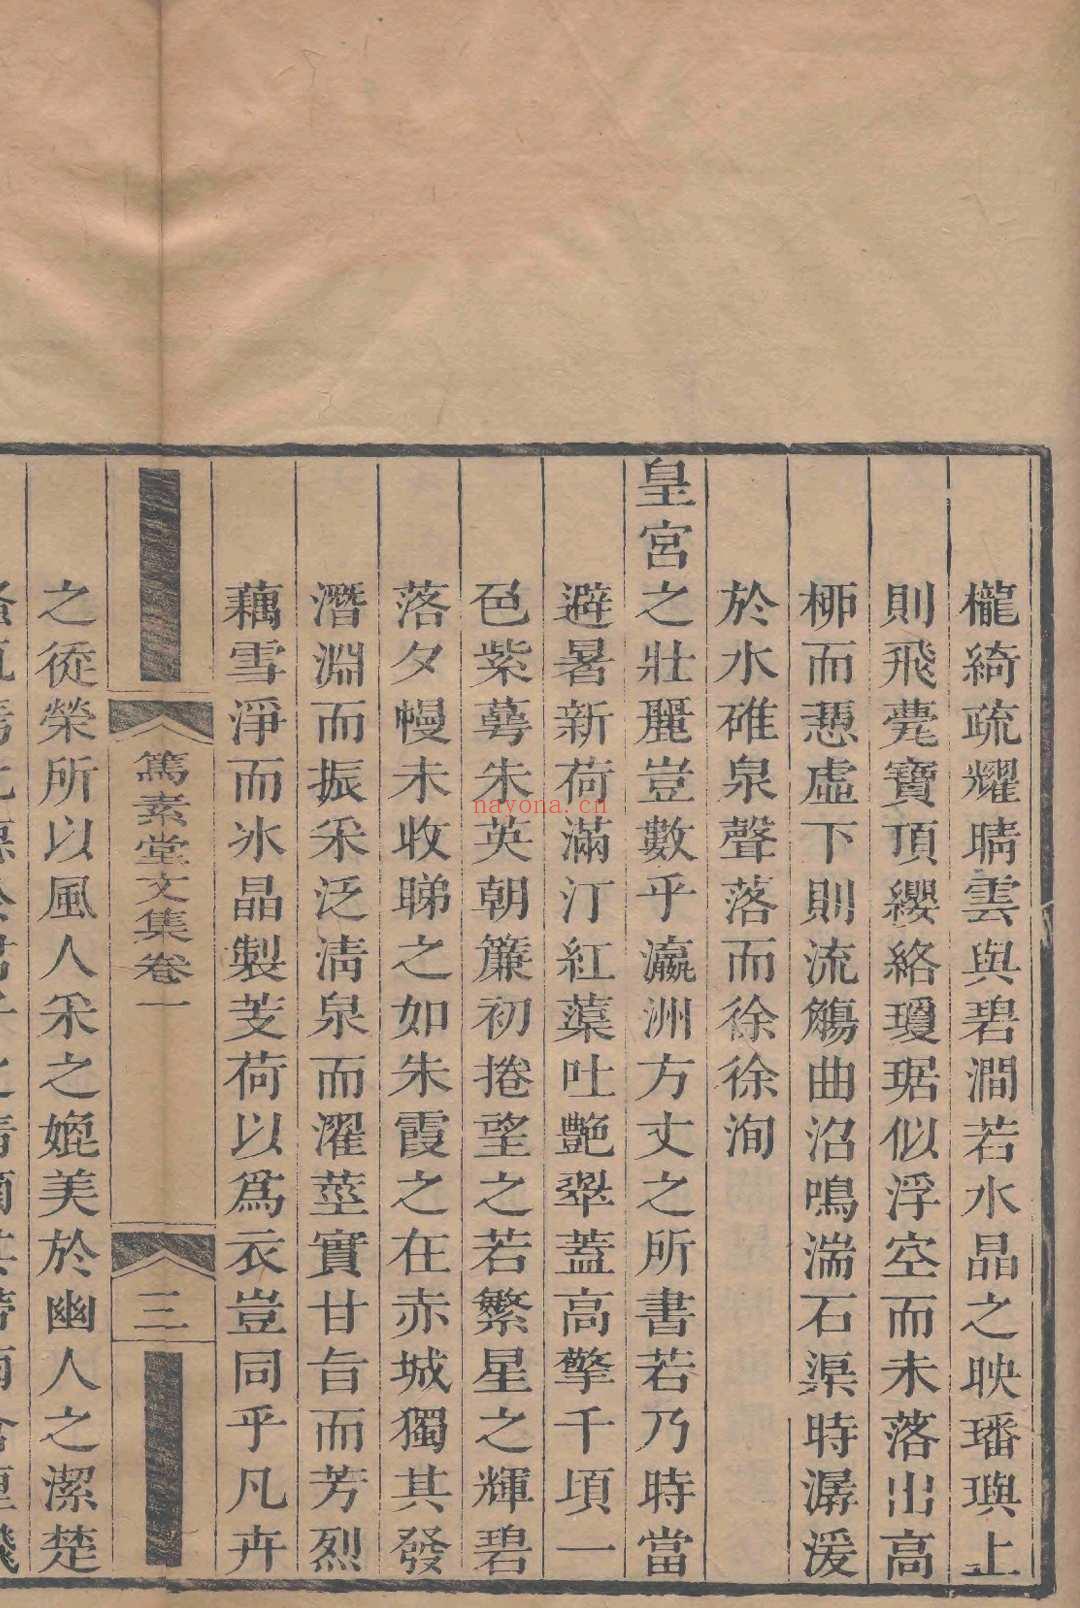 櫳綺疏耀晴雲與碧澗若水晶之映璠璵上
則飛甍寶頂纓絡瓊琚似浮空而未落出高
栁而慿虛下則流觴曲沼鳴湍石渠時潺湲
於水碓泉聲落而徐徐洵
皇宮之壯麗豈數乎瀛洲方丈之所書若乃時當
避暑新荷滿汀紅蕖吐艶翠蓋高擎千頃一
色紫萼朱英朝簾初捲望之若繁星之輝碧
落夕幔未收睇之如朱霞之在赤城獨其發
潛淵而振采泛清泉而濯莖實甘旨而芳烈
藕雪淨而氷晶製芰荷以爲衣豈同乎凡卉
篤素堂文集卷一
三
之㢟榮所以風人采之媲美於幽人之潔楚
nayona.cn